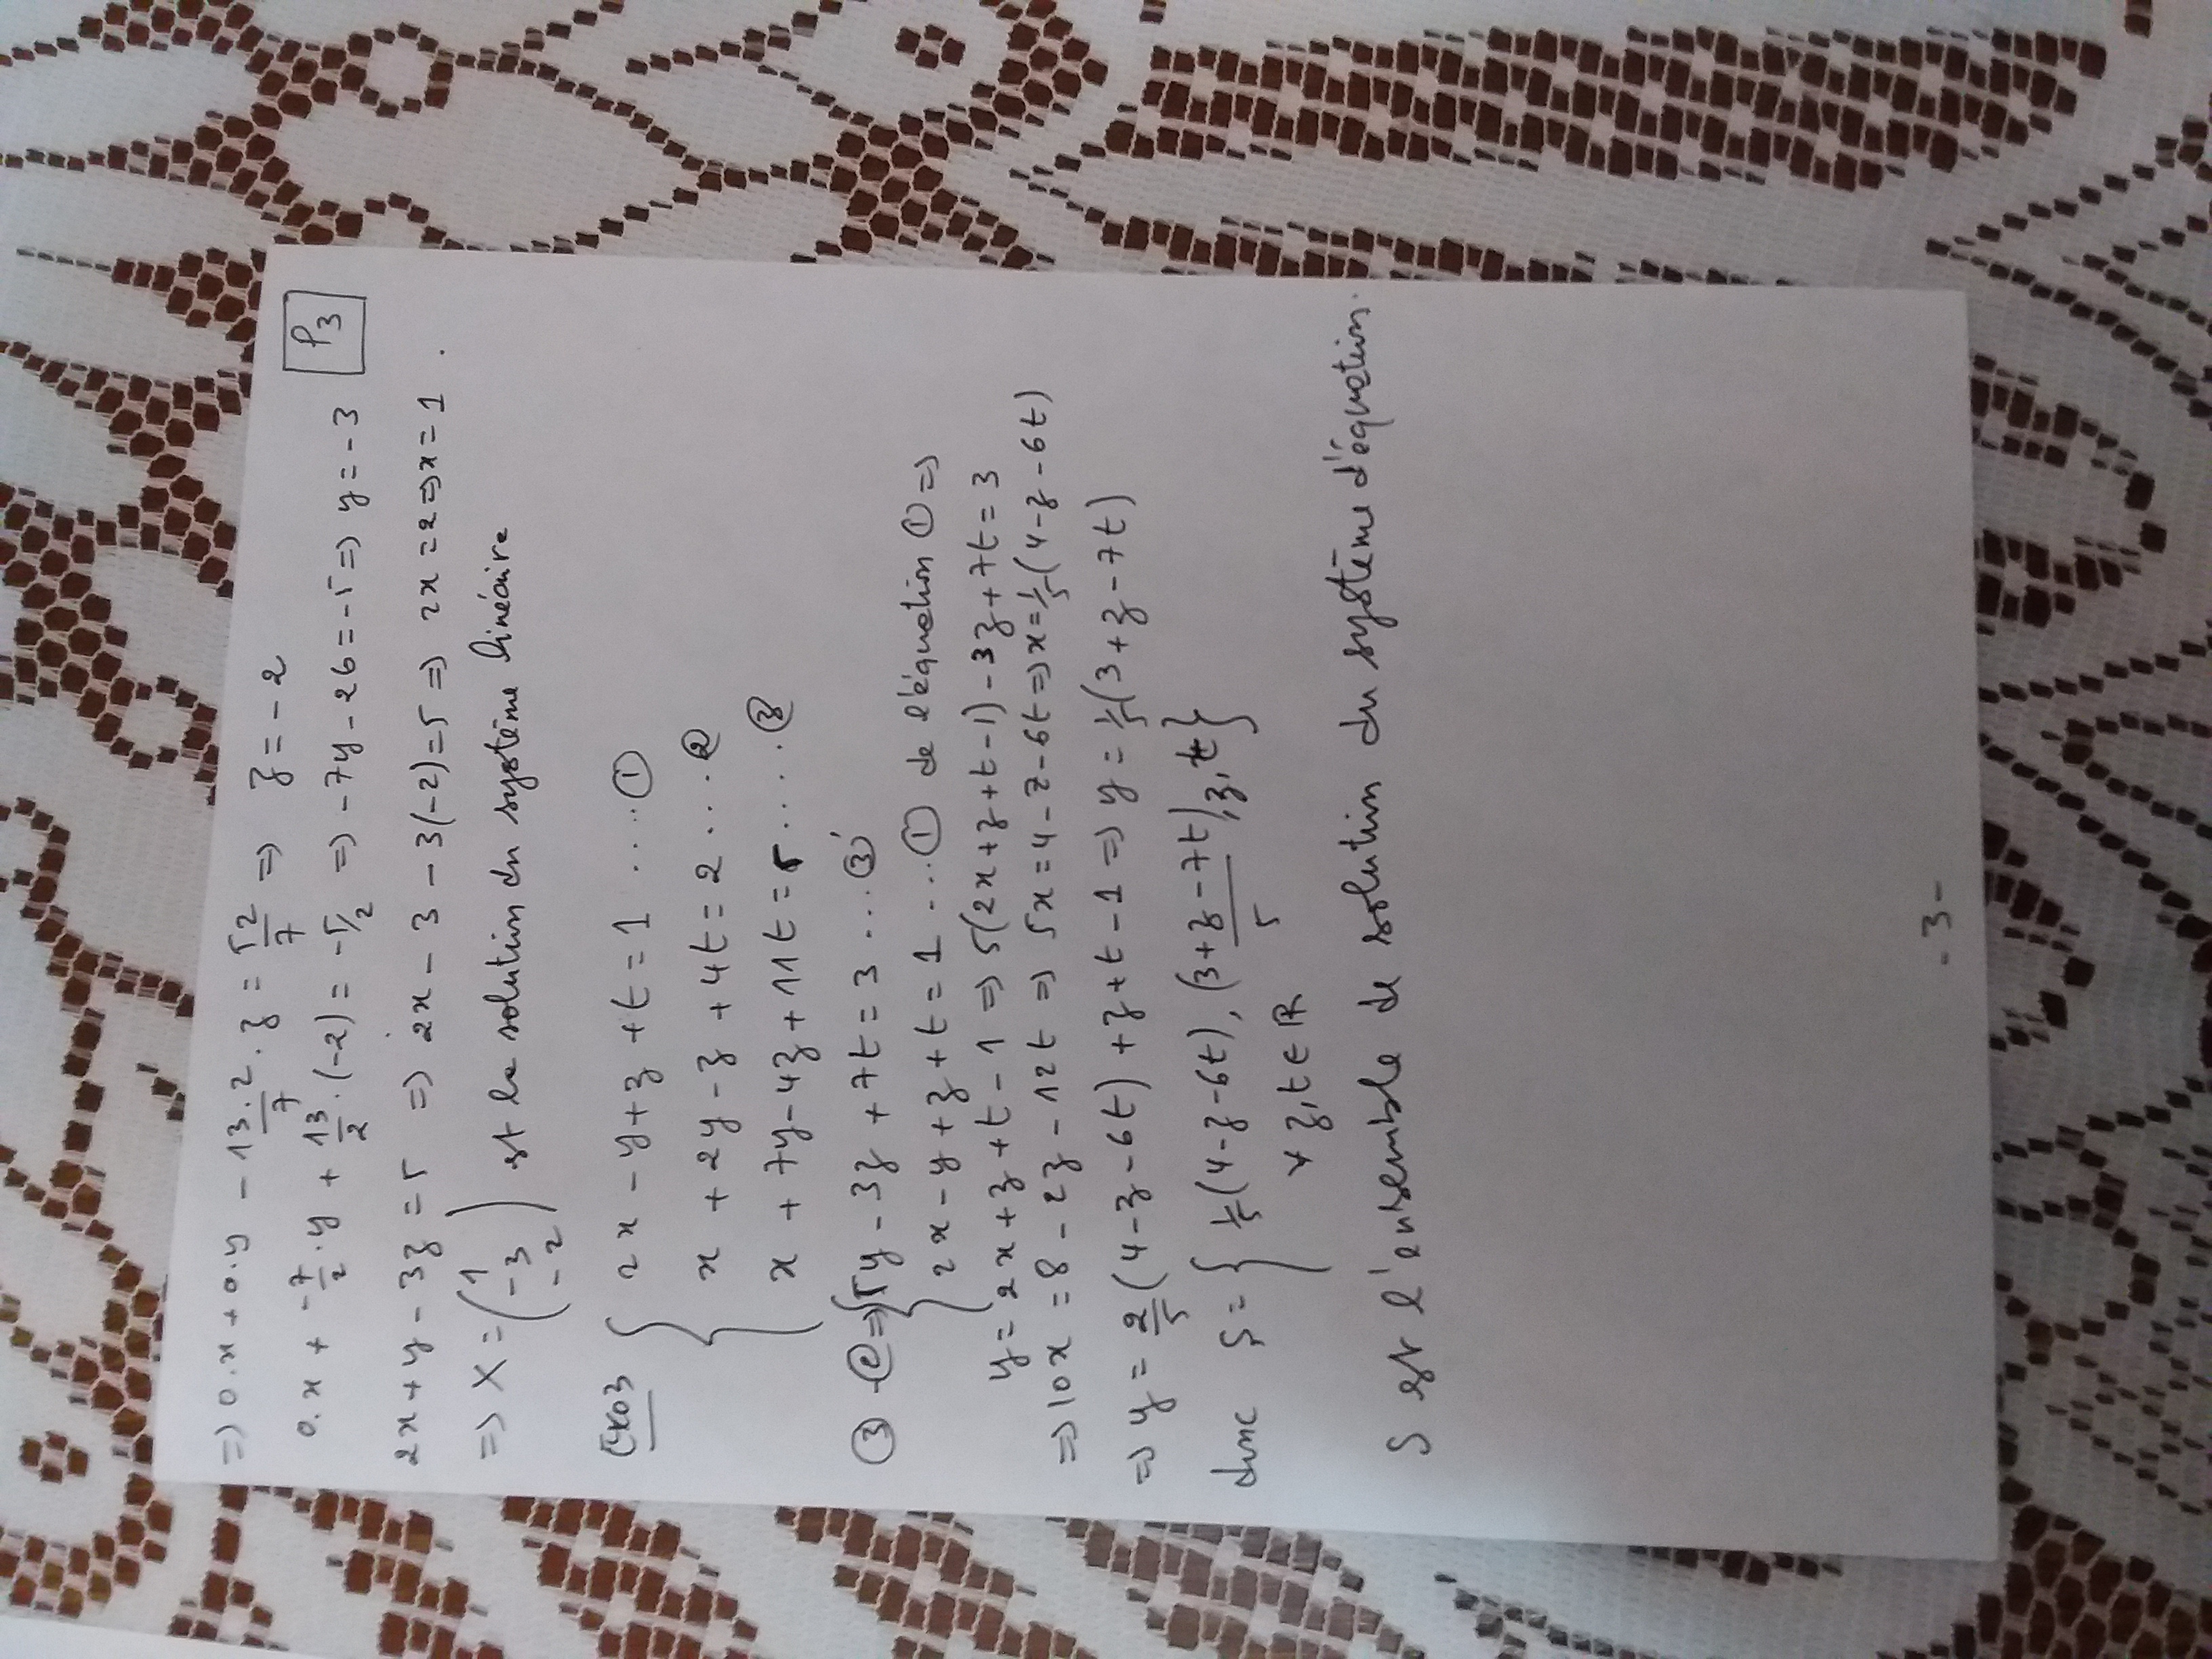 P3
=> 0.x + 0.y - 13.2/7 . z = 52/7 => z = -2
0.x + -7/2 . y + 13/2 . (-2) = -5/2 => -7y - 26 = -5 => y = -3
2x + y - 3z = 5 => 2x - 3 - 3(-2) = 5 => 2x = 2 => x = 1 .
=> X = (1 -3 -2) est la solution du système linéaire
Exo3 { 2x - y + z + t = 1 ....①
x + 2y - z + 4t = 2 ... ②
x + 7y - 4z + 11t = 5 .... ③
③ - ② => { 5y - 3z + 7t = 3 ... ③'
2x - y + z + t = 1 ... ① de l'équation ① =>
y = 2x + z + t - 1 => 5(2x + z + t - 1) - 3z + 7t = 3
=> 10x = 8 - 2z - 12t => 5x = 4 - z - 6t => x = 1/5 (4 - z - 6t)
=> y = 2/5 (4 - z - 6t) + z + t - 1 => y = 1/5 (3 + z - 7t)
donc S = { 1/5 (4 - z - 6t), (3 + z - 7t)/5, z, t }
∀ z, t ∈ ℝ
S est l'ensemble de solution du système d'équation.
- 3 -